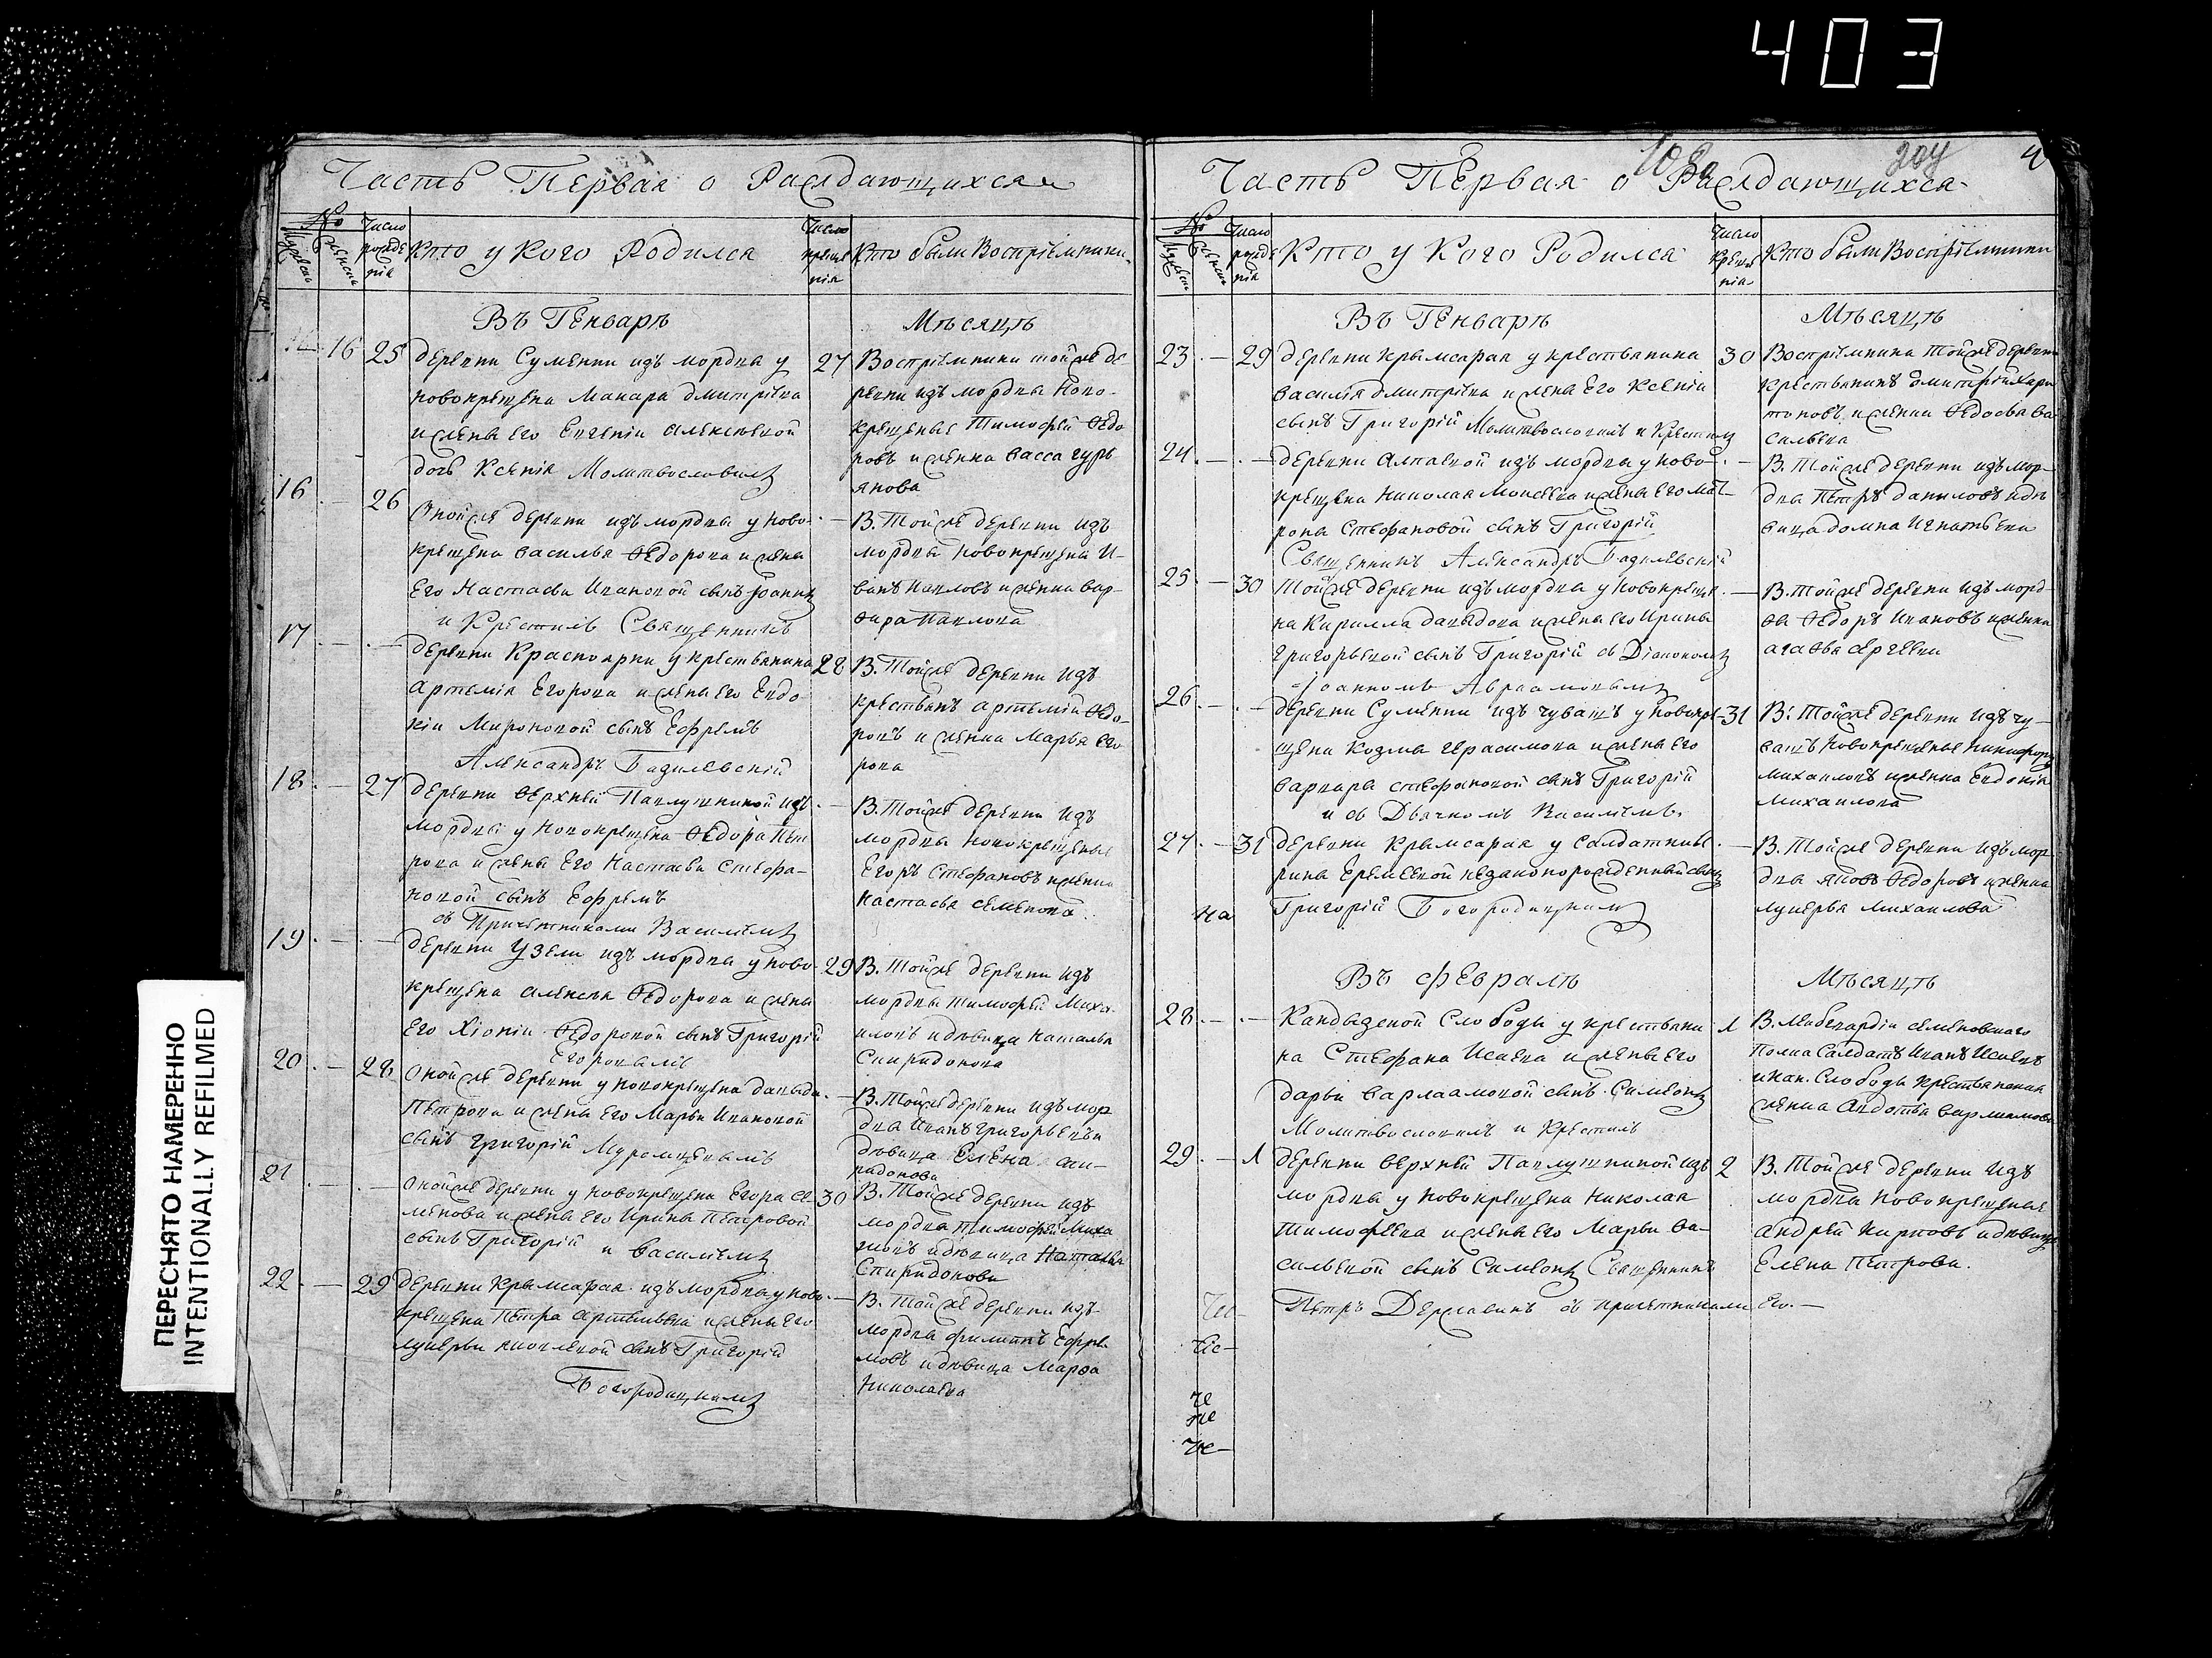 403
Часть Первая о Раждающихся
№
Мужескъ
Женскъ
Число рожденія
Кто у Кого Родился
Число крещенія
Кто были Воспріемники
Въ Генварѣ
Мѣсяцѣ
16 25
деревни Суменки изъ мордвы у
новокрещена Макара дмитріева
и жены его Евгеніи алексѣевой
дочь Ксенія Молитвословилъ
27
Воспріемники тойже де-
ревни изъ мордвы Ново-
крещеные Тимофей Ѳедо
ровъ и женка васса гурь
янова
16 — 26
Онойже деревни изъ мордвы у ново-
крещена василья Ѳедорова и жены
Его Настасьи Ивановой сынъ Іоаннъ
и Крестилъ Священникъ
В. Тойже деревни изъ
мордвы новокрещены И-
ванъ Павловъ и женка вар-
вара Павлова
17 — —
деревни Красноярки у крестьянина
артемія Егорова и жены его Евдо-
кіи Мироновой сынъ Ефремъ
Александръ Базилевскій
28
В. Тойже деревни изъ
крестьянъ артемій Ѳедо-
ровъ и женка Марья его
рова
18 — 27
деревни верхней Павлушкиной изъ
мордвы у новокрещена Ѳедора Пет
рова и жены Его Настасьи стефа-
новой сынъ Ефремъ
съ Причетниками Василіемъ
В. Тойже деревни изъ
мордвы новокрещеные
Егоръ Стефановъ и женка
настасья семенова
19 — —
деревни Узели изъ мордвы у ново-
крещена алексѣя Ѳедорова и жены
Его Хіоніи Ѳедоровой сынъ Григорій
Егоровымъ
29
В. Тойже деревни изъ
мордвы тимофей Миха
иловъ и дѣвица наталья
Спиридонова
20 — 28
Онойже деревни у новокрещена давыда
Петрова и жены его Марьи Ивановой
сынъ григорій Муромцевымъ
В. Тойже деревни изъ мор
двы Иванъ Григорьевъ и
дѣвица Елена спи-
ридонова
21 — —
Онойже деревни у новокрещена Егора се
менова и жены его Ирины Петровой
сынъ Григорій и Василіемъ
30
В. Тойже деревни изъ
мордвы тимофей Миха
иловъ и дѣвица Наталья
Спиридонова
22 — 29
деревни Крымсарая изъ мордвы у ново-
крещена Петра артемьева и жены его
лукерьи яковлевой сынъ Григорій
Богородицкимъ
В. Тойже деревни изъ
мордвы филиппъ Ефре
мовъ и дѣвица Марѳа
николаева
204
4
Часть Первая о Раждающихся
№
Мужескъ
Женскъ
Число рожденія
Кто у Кого Родился
Число Крещенія
Кто были Воспріемники
Въ Генварѣ
Мѣсяцѣ
23 — 29
деревни Крымсарая у крестьянина
василія дмитріева и жены Его Ксеніи
сынъ Григорій Молитвословилъ и Крестилъ
30
Воспріемники Тойже деревни
крестьянинъ дмитрій хари
тоновъ и женки Ѳедосья ва
сильева
24 — —
деревни алпаевой изъ мордвы у ново-
крещена николая Моисеева и жены его мат-
роны Стефановой сынъ Григорій
Священникъ Александръ Базилевскій
В. Тойже деревни изъ мор-
двы Петръ даниловъ и дѣ
вица домна Игнатьева
25 — 30
Тойже деревни изъ мордвы у новокреще-
на Кирилла давыдова и жены его Ирины
григорьевой сынъ Григорій съ Діакономъ
Іоанномъ Авраамовымъ
В. Тойже деревни изъ морд-
вы Ѳедоръ Ивановъ и женка
агаѳья сергеева
26 — —
деревни Суменки изъ чувашъ у новокре-
щена козмы герасимова и жены его
варвары стефановой сынъ Григорій
и съ Дьячкомъ Василіемъ
31
В. Тойже деревни изъ чу-
вашъ новокрещеные никифоръ
михаиловъ и женка Евдокія
михаилова
27 — 31
деревни Крымсарая у салдатки Ев
рины Еремеевой незаконорожденный сынъ
Григорій Богородицкимъ
В. Тойже деревни изъ мор
двы яковъ Ѳедоровъ и женка
лукерья Михаилова
на
Въ февралѣ
Мѣсяцѣ
28 — —
Кандызской Слободы у крестьяни
на Стефана Исаева и жены Его
дарьи варлаамовой сынъ Симеонъ
Молитвословилъ и Крестилъ
1
В. Лейбгвардіи семеновскаго
полка Салдатъ Иванъ Исаевъ
и кан. Слободы крестьянская
женка авдотья варлаамова
29 — 1
деревни верхней Павлушкиной изъ
мордвы у новокрещена николая
тимофеева и жены его Марьи ва-
сильевой сынъ Симеонъ Священникъ
Петръ Державинъ съ причетниками Его. —
2
В. Тойже деревни изъ
мордвы новокрещеные
андрей Карповъ и дѣвица
Елена Петрова.
ПЕРЕСНЯТО НАМЕРЕННО
INTENTIONALLY REFILMED